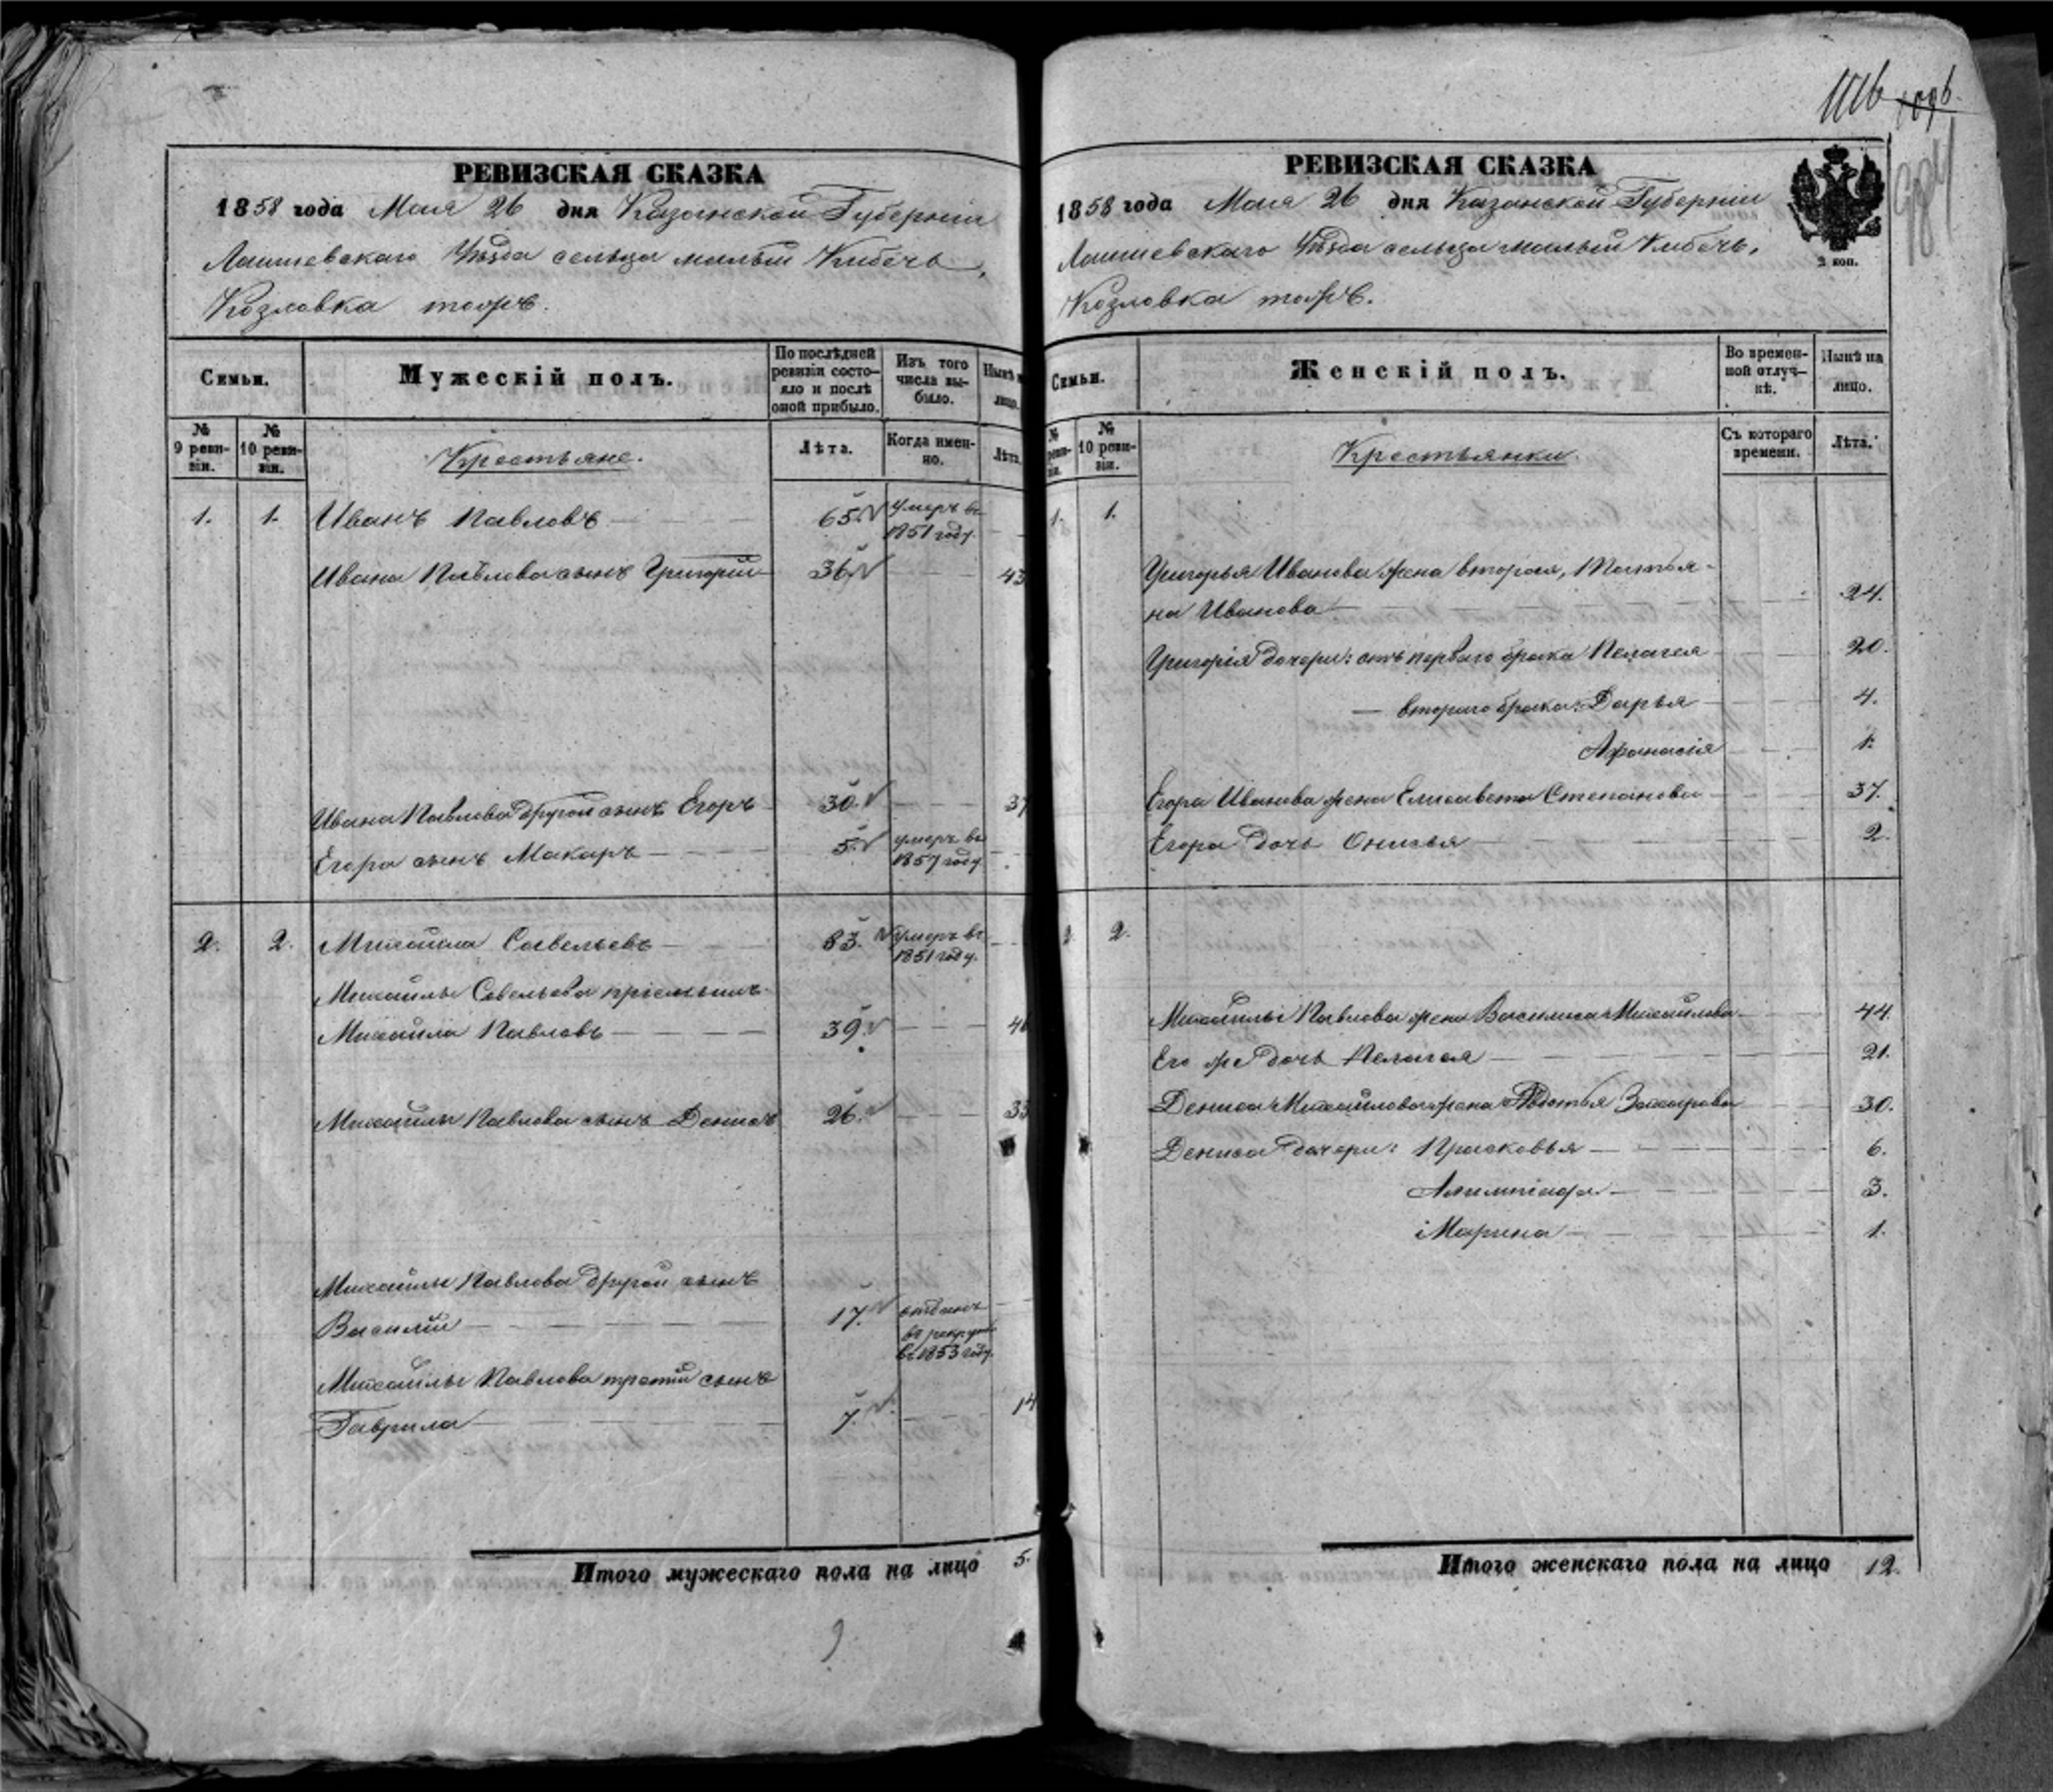 РЕВИЗСКАЯ СКАЗКА
1858 года Мая 26 дня Казанской Губерніи
Лаишевскаго Уѣзда сельца малый Кибечь,
Козловка тожъ.
Семьи.
Мужескій полъ.
По послѣдней ревизіи состояло и послѣ оной прибыло.
Изъ того числа выбыло.
Нынѣ
лицо.
№ 9 ревизіи.
№ 10 ревизіи.
Крестьяне.
Лѣта.
Когда именно.
Лѣта.
1. 1. Иванъ Павловъ 65. умеръ въ
1851 году.
Ивана Павлова сынъ Григорій 36. 43
Ивана Павлова другой сынъ Егоръ 30. 37
Егора сынъ Макаръ 5. умеръ въ
1857 году
2. 2. Михайла Савельевъ 83. умеръ въ
1851 году.
Михайлы Савельева пріемышъ
Михайла Павловъ 39. 46
Михайлы Павлова сынъ Денисъ 26. 33
Михайлы Павлова другой сынъ
Василій 17. отданъ
въ рекруты
въ 1853 году.
Михайлы Павлова третій сынъ
Гаврила 7. 14
Итого мужескаго пола на лицо 5.
1116
РЕВИЗСКАЯ СКАЗКА
1858 года Мая 26 дня Казанской Губерніи
Лаишевскаго Уѣзда сельца малый Кибечь,
Козловка тожъ.
Семьи.
Женскій полъ.
Во временной отлучкѣ.
Нынѣ на лицо.
№ 10 ревизіи.
Крестьянки.
Съ котораго времени.
Лѣта.
1. 1.
Григорья Иванова жена вторая, Татья-
на Иванова 24.
Григорія дочери: отъ перваго брака Пелагея 20.
втораго брака: Дарья 4.
Афанасія 1.
Егора Иванова жена Елисавета Степанова 37.
Егора дочь Онисья 2.
2 2.
Михайлы Павлова жена Василиса Михайлова 44.
Его же дочь Пелагея 21.
Дениса Михайлова жена Авдотья Захарова 30.
Дениса дочери: Прасковья 6.
Алимпіада 3.
Марина 1.
Итого женскаго пола на лицо 12.